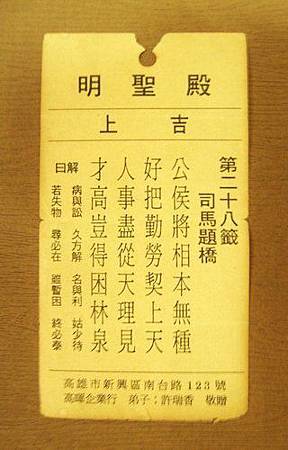 明聖殿
上吉
第二十八籤
司馬題橋
公侯將相本無種
好把勤勞契上天
人事盡從天理見
才高豈得困林泉
解曰
病與訟 久方解 名與利 姑少待
若失物 尋必在 雖暫困 終必泰
高雄市新興區南台路123號
高暉企業行 弟子:許瑞香 敬贈